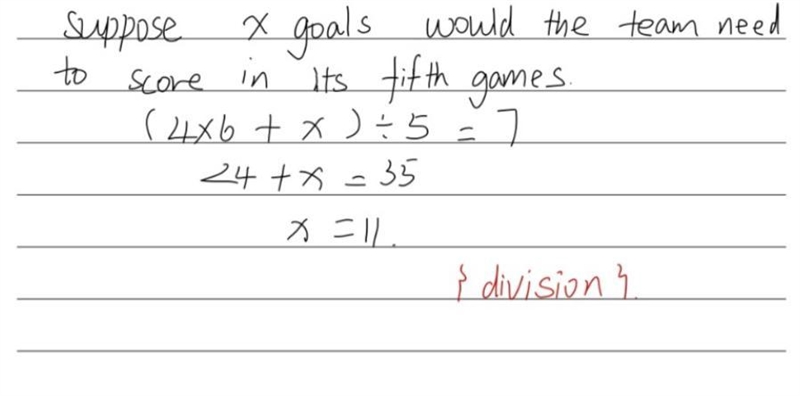 suppose x goals would the team need
to score in its fifth games.
(4×6 + x) ÷ 5 = 7
24 + x = 35
x = 11.
{ division }.